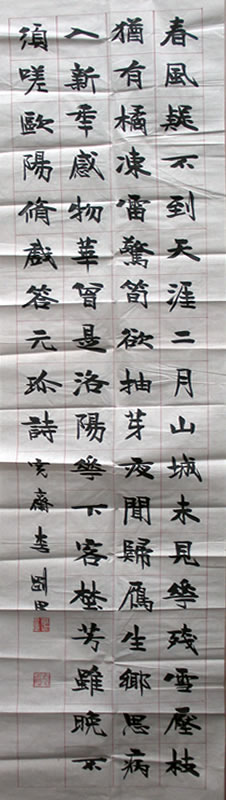 春風疑不到天涯二月山城未見華殘雪壓枝
猶有橘凍雷驚筍欲抽芽夜聞歸鴈生鄉思病
入新秊感物華曾是洛陽華下客埜芳雖晚不
須嗟歐陽脩戲答元珍詩 齋李